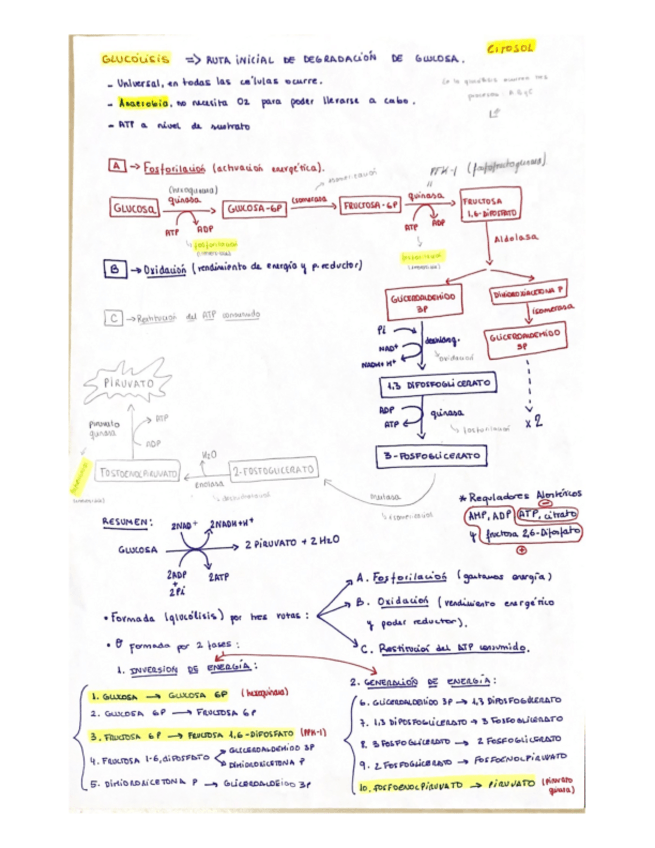 GLUCÓLISIS => RUTA INICIAL DE DEGRADACIÓN DE GLUCOSA.
CITOSOL
- Universal, en todas las células ocurre.
- Anaerobia, no necesita O2 para poder llevarse a cabo.
- ATP a nivel de sustrato
A → Fosforilación (activación energética).
isomerización
PFK-1 (fosfofructoquinasa)
(hexoquinasa)
quinasa
isomerasa
quinasa
GLUCOSA
GLUCOSA-6P
FRUCTOSA-6P
FRUCTOSA 1,6-DIFOSFATO
ATP ADP
ATP ADP
fosforilación
Aldolasa
B → Oxidación (rendimiento de energía y p. reductor)
GLICERALDEHIDO 3P
DIHIDROXIACETONA P
isomerasa
GLICERALDEHIDO 3P
C → Restitución del ATP consumido
Pi
NAD+
NADH+H+
deshidrog.
oxidación
PIRUVATO
1,3 DIFOSFOGLICERATO
x2
ADP
ATP
quinasa
fosforilación
Piruvato quinasa
ATP
ADP
3-FOSFOGLICERATO
FOSFOENOLPIRUVATO
H2O
enolasa
deshidratación
2-FOSFOGLICERATO
mutasa
isomerización
* Reguladores Alostéricos
AMP, ADP ATP, citrato
y fructosa 2,6-Difosfato
RESUMEN:
2NAD+ 2NADH+H+
GLUCOSA → 2 PIRUVATO + 2H2O
2ADP + 2Pi
2ATP
• Formada (glucólisis) por tres rutas:
A. Fosforilación (gastamos energía)
B. Oxidación (rendimiento energético y poder reductor).
C. Restitución del ATP consumido.
• O formada por 2 fases:
1. INVERSIÓN DE ENERGÍA:
1. GLUCOSA → GLUCOSA 6P (hexoquinasa)
2. GLUCOSA 6P → FRUCTOSA 6P
3. FRUCTOSA 6P → FRUCTOSA 1,6-DIFOSFATO (PFK-1)
4. FRUCTOSA 1-6, DIFOSFATO GLICERALDEHIDO 3P
DIHIDROXICETONA P
5. DIHIDROXICETONA P → GLICERALDEHIDO 3P
2. GENERACIÓN DE ENERGÍA:
6. GLICERALDEHIDO 3P → 1,3 DIFOSFOGLICERATO
7. 1,3 DIFOSFOGLICERATO → 3 FOSFOGLICERATO
8. 3 FOSFOGLICERATO → 2 FOSFOGLICERATO
9. 2 FOSFOGLICERATO → FOSFOENOLPIRUVATO
10. FOSFOENOLPIRUVATO → PIRUVATO (piruvato quinasa)